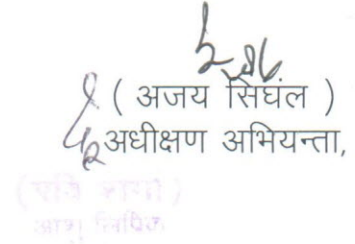 ( अजय सिंघल )
अधीक्षण अभियन्ता,
आशु लिपिक